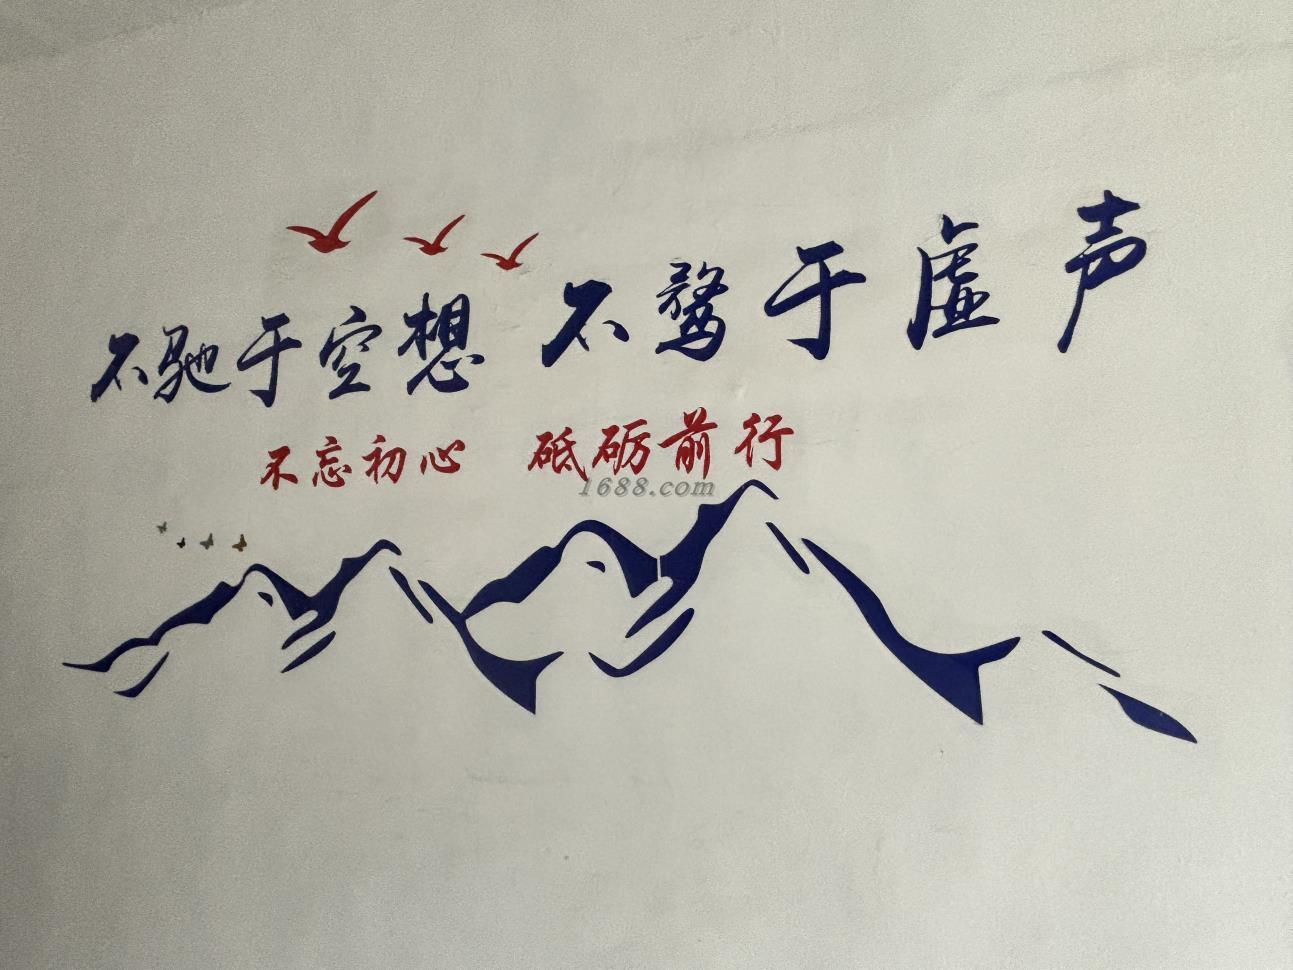 不驰于空想 不骛于虚声
不忘初心 砥砺前行
1688.com